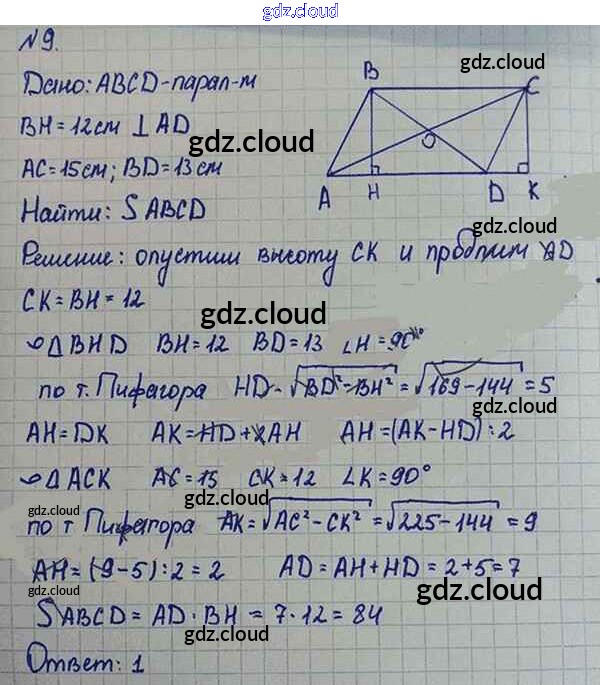 gdz.cloud
№9.
gdz.cloud
Дано: ABCD-парал-м
gdz.cloud
B C
BH = 12см ⊥ AD
gdz.cloud
O
AC = 15см; BD = 13см
A H D K
Найти: S ABCD
gdz.cloud
Решение: опустим высоту CK и продлим AD
CK = BH = 12
gdz.cloud
△BHD BH = 12 BD = 13 ∠H = 90°
по т. Пифагора HD = √BD² - BH² = √169 - 144 = 5
gdz.cloud
AH = DK AK = HD + 2AH AH = (AK - HD) : 2
△ACK AC = 15 CK = 12 ∠K = 90°
gdz.cloud gdz.cloud
по т Пифагора AK = √AC² - CK² = √225 - 144 = 9
gdz.cloud
AH = (9 - 5) : 2 = 2 AD = AH + HD = 2 + 5 = 7
gdz.cloud
S ABCD = AD · BH = 7 · 12 = 84
gdz.cloud
Ответ: 1
gdz.cloud